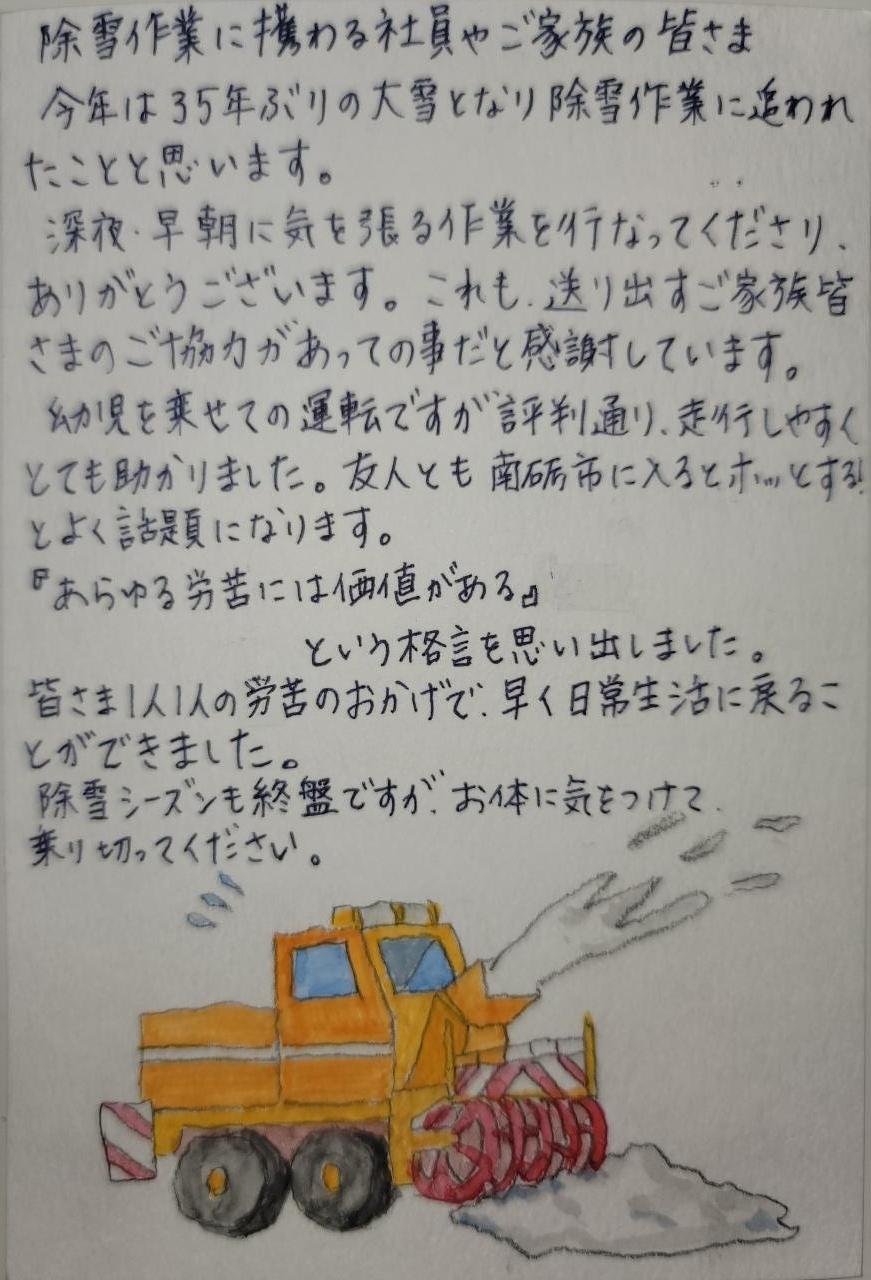 除雪作業に携わる社員やご家族の皆さま
今年は35年ぶりの大雪となり除雪作業に追われ
たことと思います。
深夜・早朝に気を張る作業を行なってくださり、
ありがとうございます。これも、送り出すご家族皆
さまのご協力があっての事だと感謝しています。
幼児を乗せての運転ですが評判通り、走行しやすく
とても助かりました。友人とも南砺市に入るとホッとする!
とよく話題になります。
『あらゆる労苦には価値がある』
という格言を思い出しました。
皆さま1人1人の労苦のおかげで、早く日常生活に戻るこ
とができました。
除雪シーズンも終盤ですが、お体に気をつけて、
乗り切ってください。